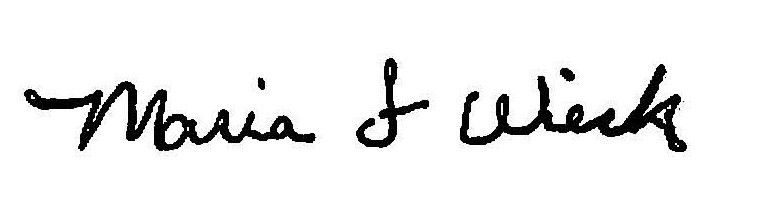 Maria J Wieck